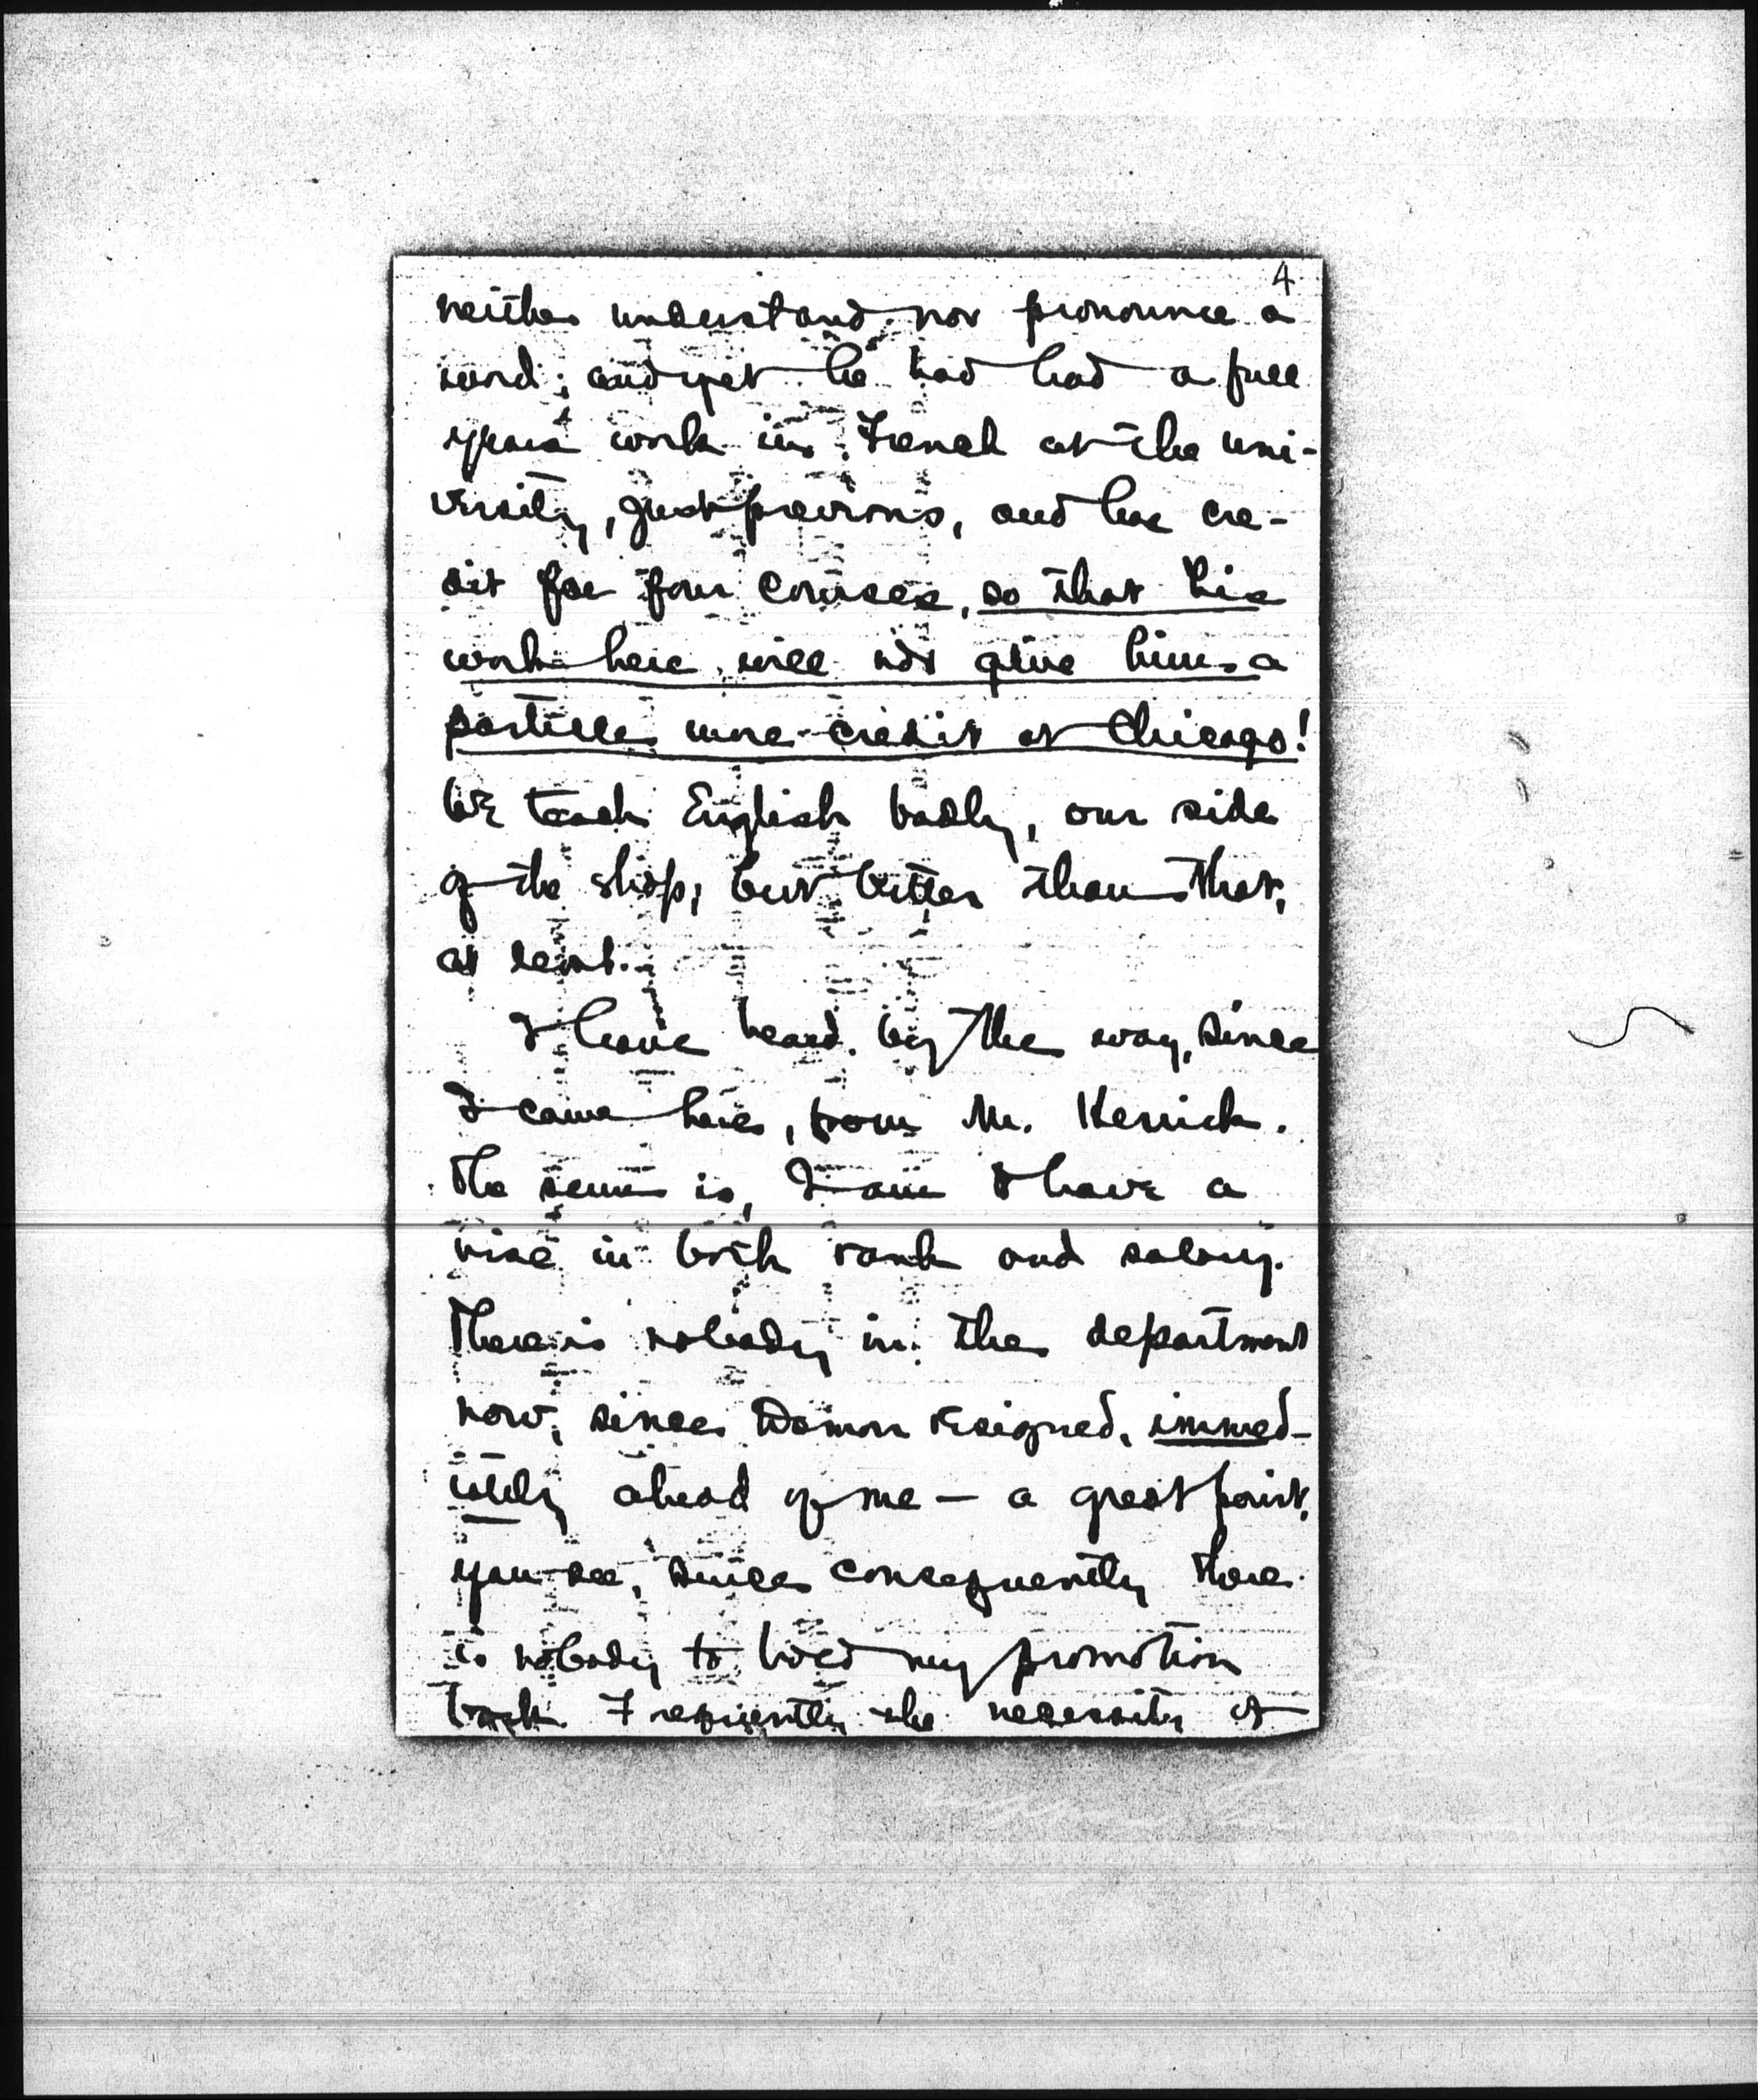 4
neither understand nor pronounce a
word; and yet he had had a full
years work in French at the uni-
versity, just previous, and has cre-
dit for four courses, so that his
work here will not give him a
particle more credit at Chicago!
We teach English badly, our side
of the shop, but better than that,
at least.
I have heard, by the way, since
I came here, from Mr. Herrick.
The sum is, I am to have a
rise in both rank and salary.
There is nobody in the department
now, since Damon resigned, immed-
iately ahead of me — a great point,
you see, since consequently there
is nobody to hold my promotion
back. Frequently the necessity of